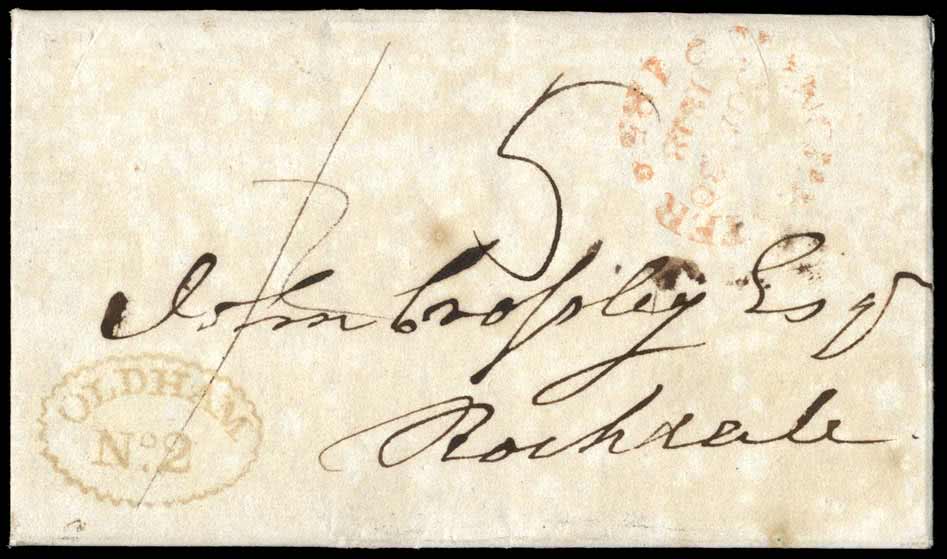 5
John Cropley Esqr
Rochdale
OLDHAM
No. 2